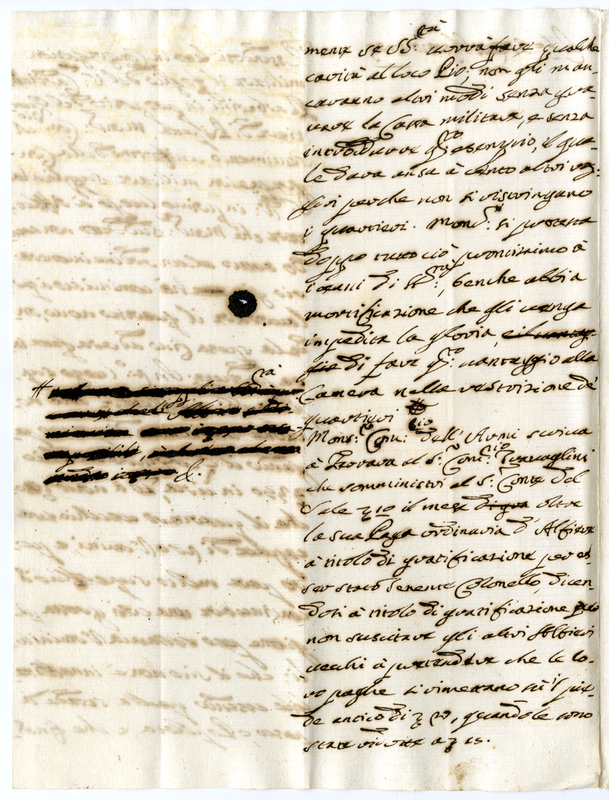 mente se S. S.tà vorrà fare qualche
carità al loco Pio, non gli man-
caranno altri modi senza gra-
vare la Cassa militare, e senza
introdurre q.to esempio, il qua-
le darà ansa à cento altri
perche non si ristringano
i quartieri. Mons.re si protesta
doppo tutto ciò prontissimo à
i cenni di V. S., benche abbia
mortificazione che gli venga
impedita la gloria,
di fare q.to vantaggio alla
Camera nella restrizione de
quartieri #
Mons.re Com.rio dell'Armi scriva
à Ferrara al S.r Com.rio
che somministri al S.r Conte del
Sale 10 il mese oltre
la sua Paga ordinaria d'Alfiere
à titolo di gratificazione per es-
ser stato Tenente Colonello, dicen-
dosi à titolo di gratificazione per
non suscitare gli altri Alfieri
vecchi à pretendere che le lo-
ro paghe si rimettano sù'l pie-
de antico di 20, quando le sono
state ridotte a 15.
#
&.